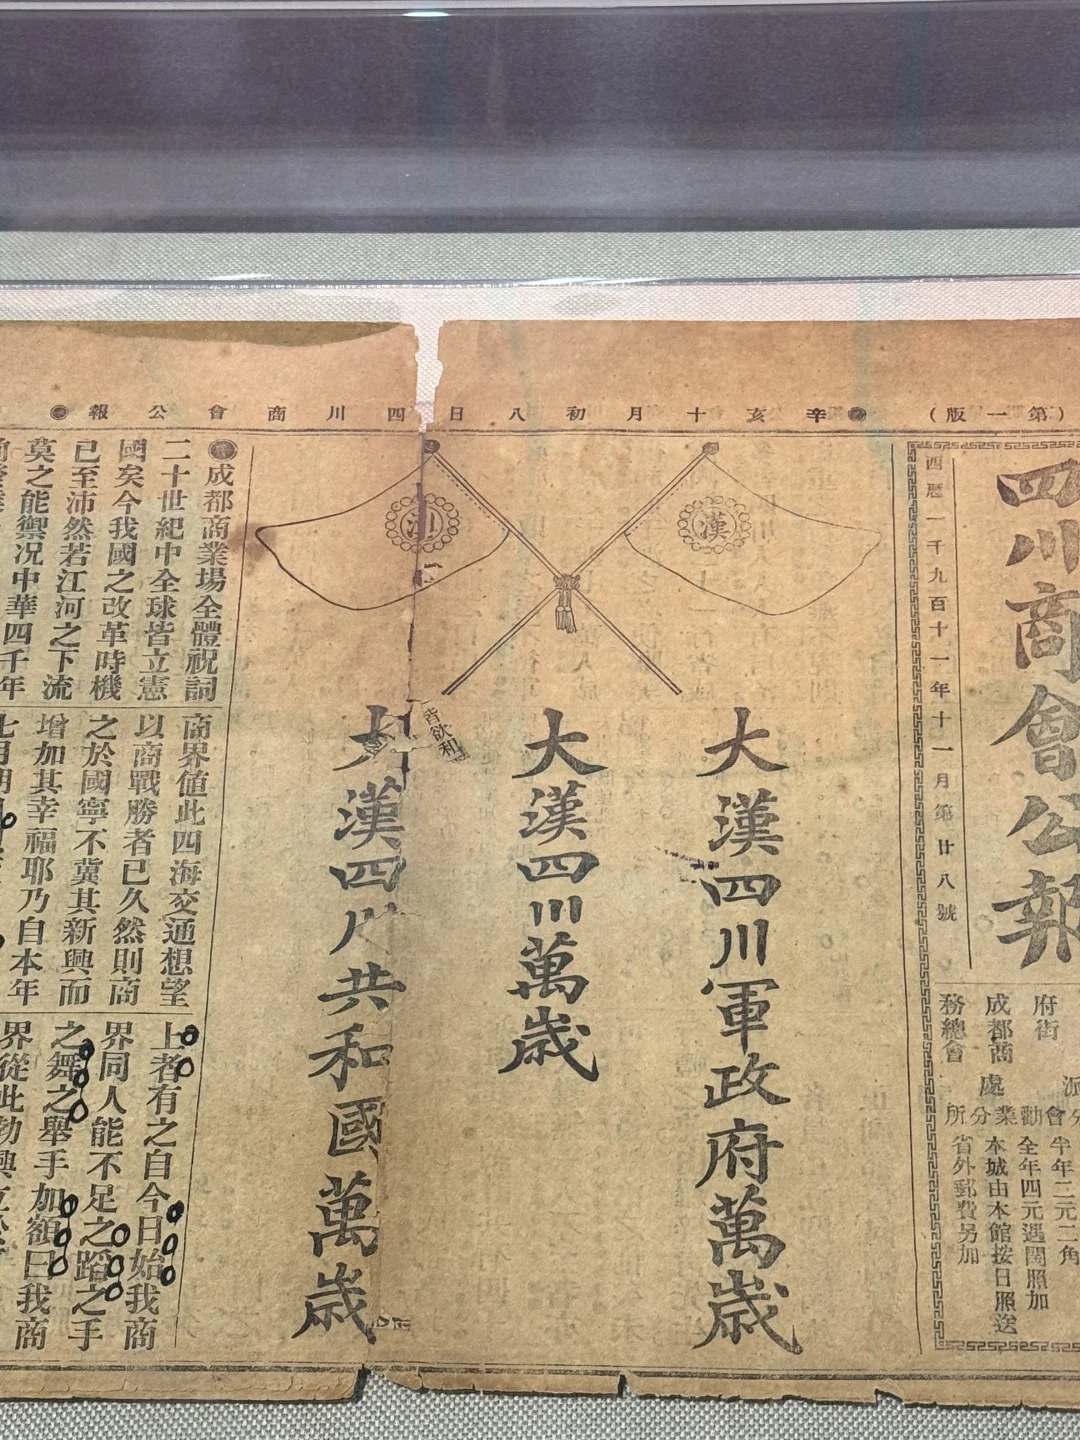 （第一版）
辛亥十月初八日四川商會公報
四川商會公報
西曆一千九百十一年十一月第廿八號
府街
成都商
務總會
處
會勸業分所
半年二元二角
全年四元遇閏照加
本城由本館按日照送
省外郵費另加
漢
大漢四川軍政府萬歲
大漢四川萬歲
大漢四川共和國萬歲
皆欲利
成都商業場全體祝詞
二十世紀中全球皆立憲
國矣今我國之改革時機
已至沛然若江河之下流
莫之能禦况中華四千年
商界値此四海交通想望
以商戰勝者已久然則商
之於國寧不冀其新興而
增加其幸福耶乃自本年
七月
上者有之自今日始我商
界同人能不足之蹈之手
之舞之舉手加額曰我商
界從此勃興